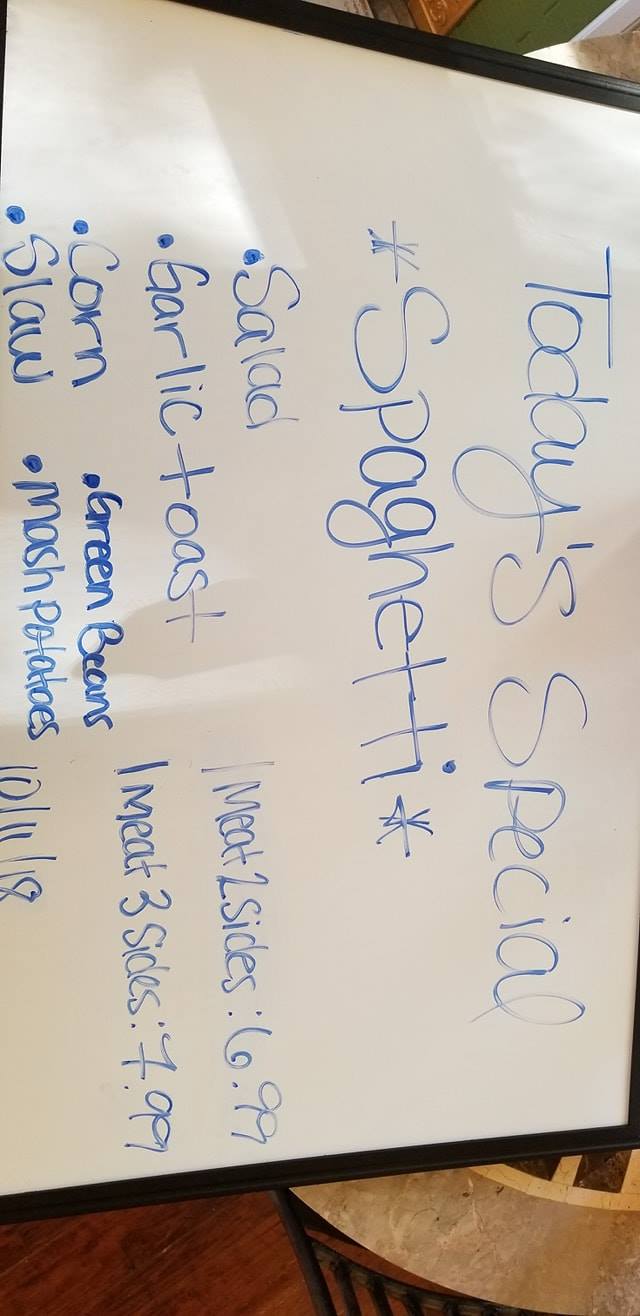 Today's Special
*Spaghetti*
• Salad
1 Meat 2 sides: 6.99
• Garlic toast
1 Meat 3 sides: 7.99
• Corn • Green Beans
• Slaw • Mash potatoes
10/11/18